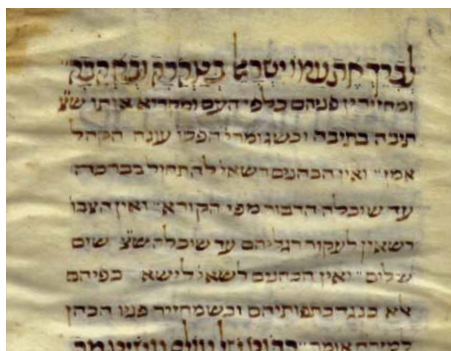 לברך את עמו ישראל
ומחזירין פניהם כלפי העם ומקריא אותו שׁצ
תיבה בתיבה וכשגומר הפסו׳ עונה הקהל
אמן ואין הכהנים רשאי׳ להתחיל בברכה
עד שיכלה הדבור מפי הקורא ואין הצבו׳
רשאין לעקור רגליהם עד שיכלה שׁצ שים
שלום ואין הכהנים רשאי׳ לישא כפיהם
לא כנגד כתפותיהם וכשמחזיר פניו הכהן
אומר